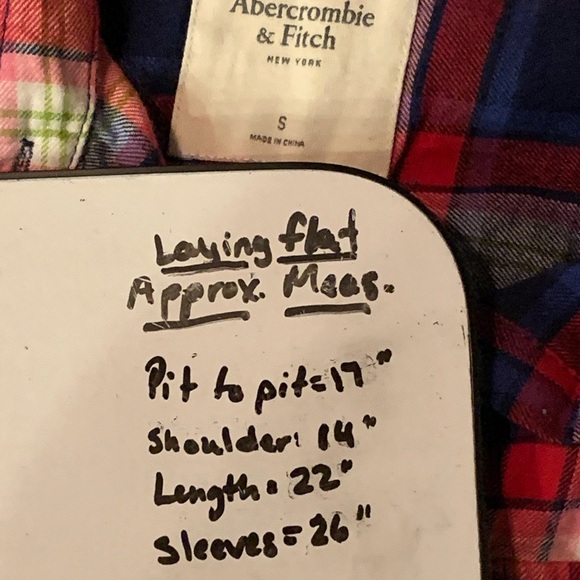 Abercrombie
& Fitch
NEW YORK
S
MADE IN CHINA
Laying flat
Approx. Meas.
Pit to pit=17"
Shoulder: 14"
Length= 22"
Sleeves= 26"